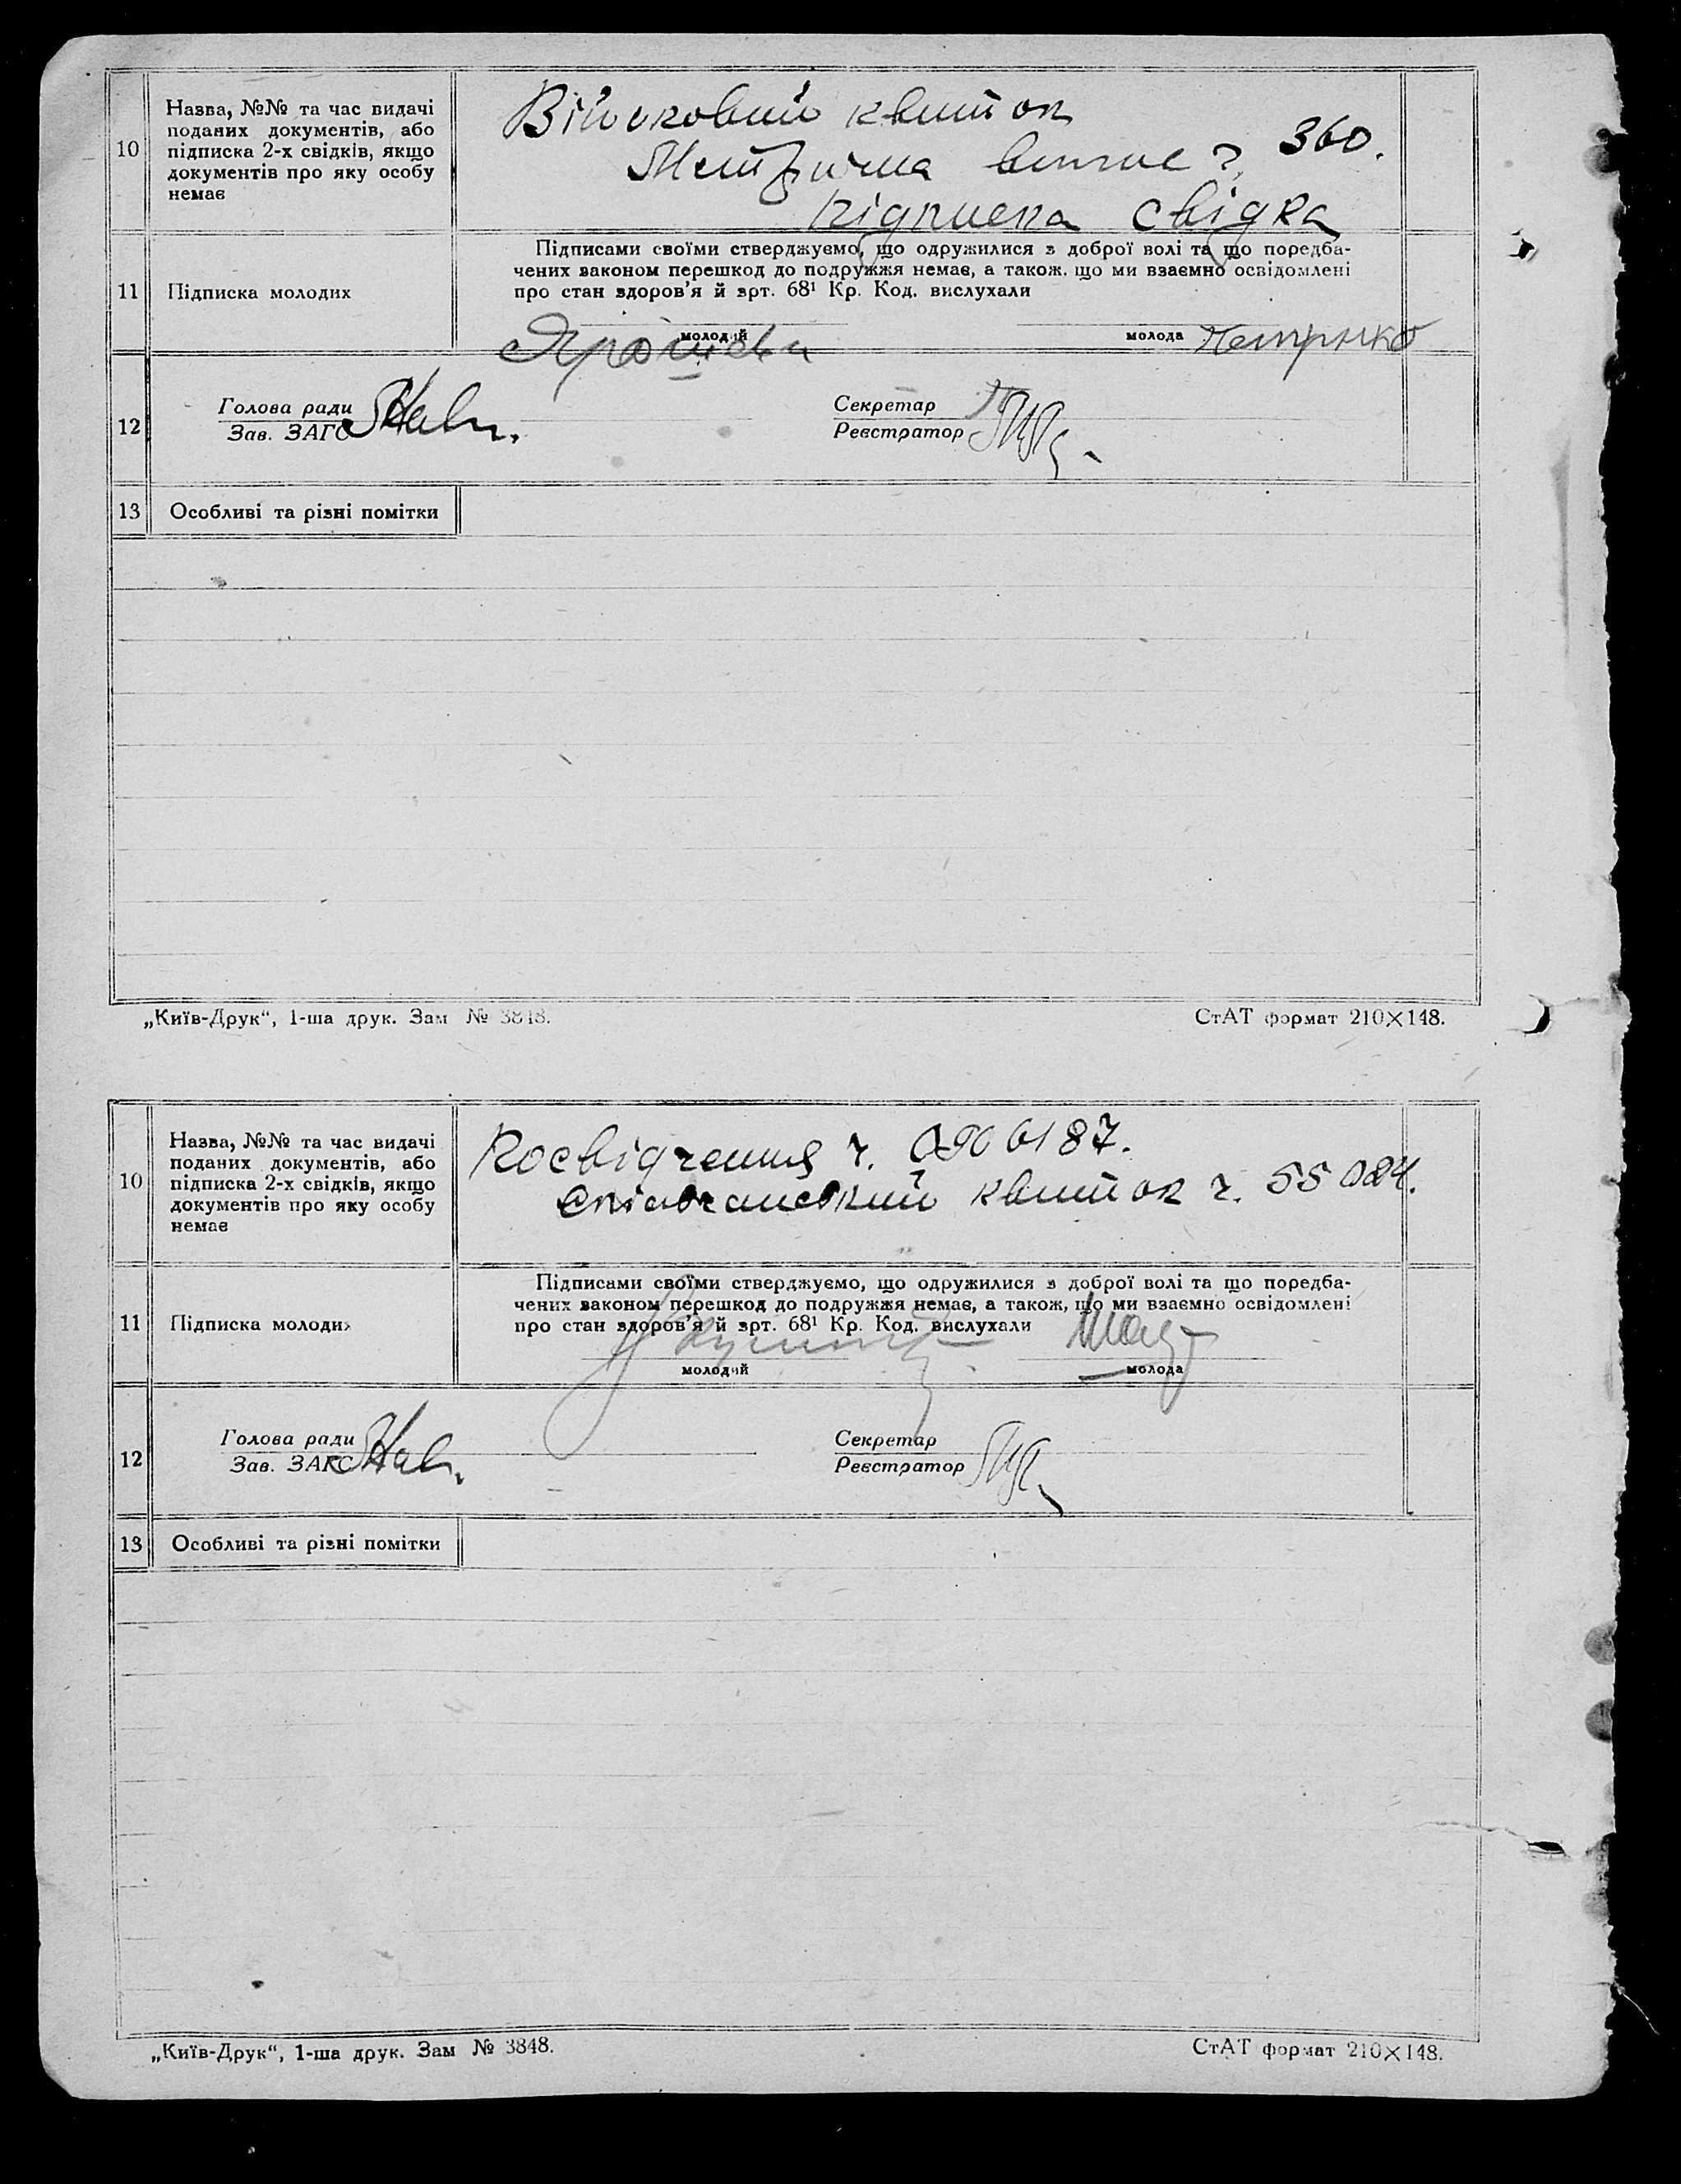 10
Назва, №№ та час видачі
поданих документів, або
підписка 2-х свідків, якщо
документів про яку особу
немає
Військовий квиток
Метрична 360.
підписка свідка
11
Підписка молодих
Підписами своїми стверджуємо, що одружилися з доброї волі та що поредба-
чених законом перешкод до подружжя немає, а також, що ми взаємно освідомлені
про стан здоров'я й арт. 68¹ Кр. Код. вислухали
молодий
молода
12
Голова ради
Зав. ЗАГС
Секретар
Реєстратор
13
Особливі та різні помітки
„Київ-Друк“, 1-ша друк. Зам № 3848.
СтАТ формат 210×148.
10
Назва, №№ та час видачі
поданих документів, або
підписка 2-х свідків, якщо
документів про яку особу
немає
Посвідчення ч.
квиток ч. 55024.
11
Підписка молодих
Підписами своїми стверджуємо, що одружилися з доброї волі та що поредба-
чених законом перешкод до подружжя немає, а також, що ми взаємно освідомлені
про стан здоров'я й арт. 68¹ Кр. Код. вислухали
молодий
молода
12
Голова ради
Зав. ЗАГС
Секретар
Реєстратор
13
Особливі та різні помітки
„Київ-Друк“, 1-ша друк. Зам № 3848.
СтАТ формат 210×148.